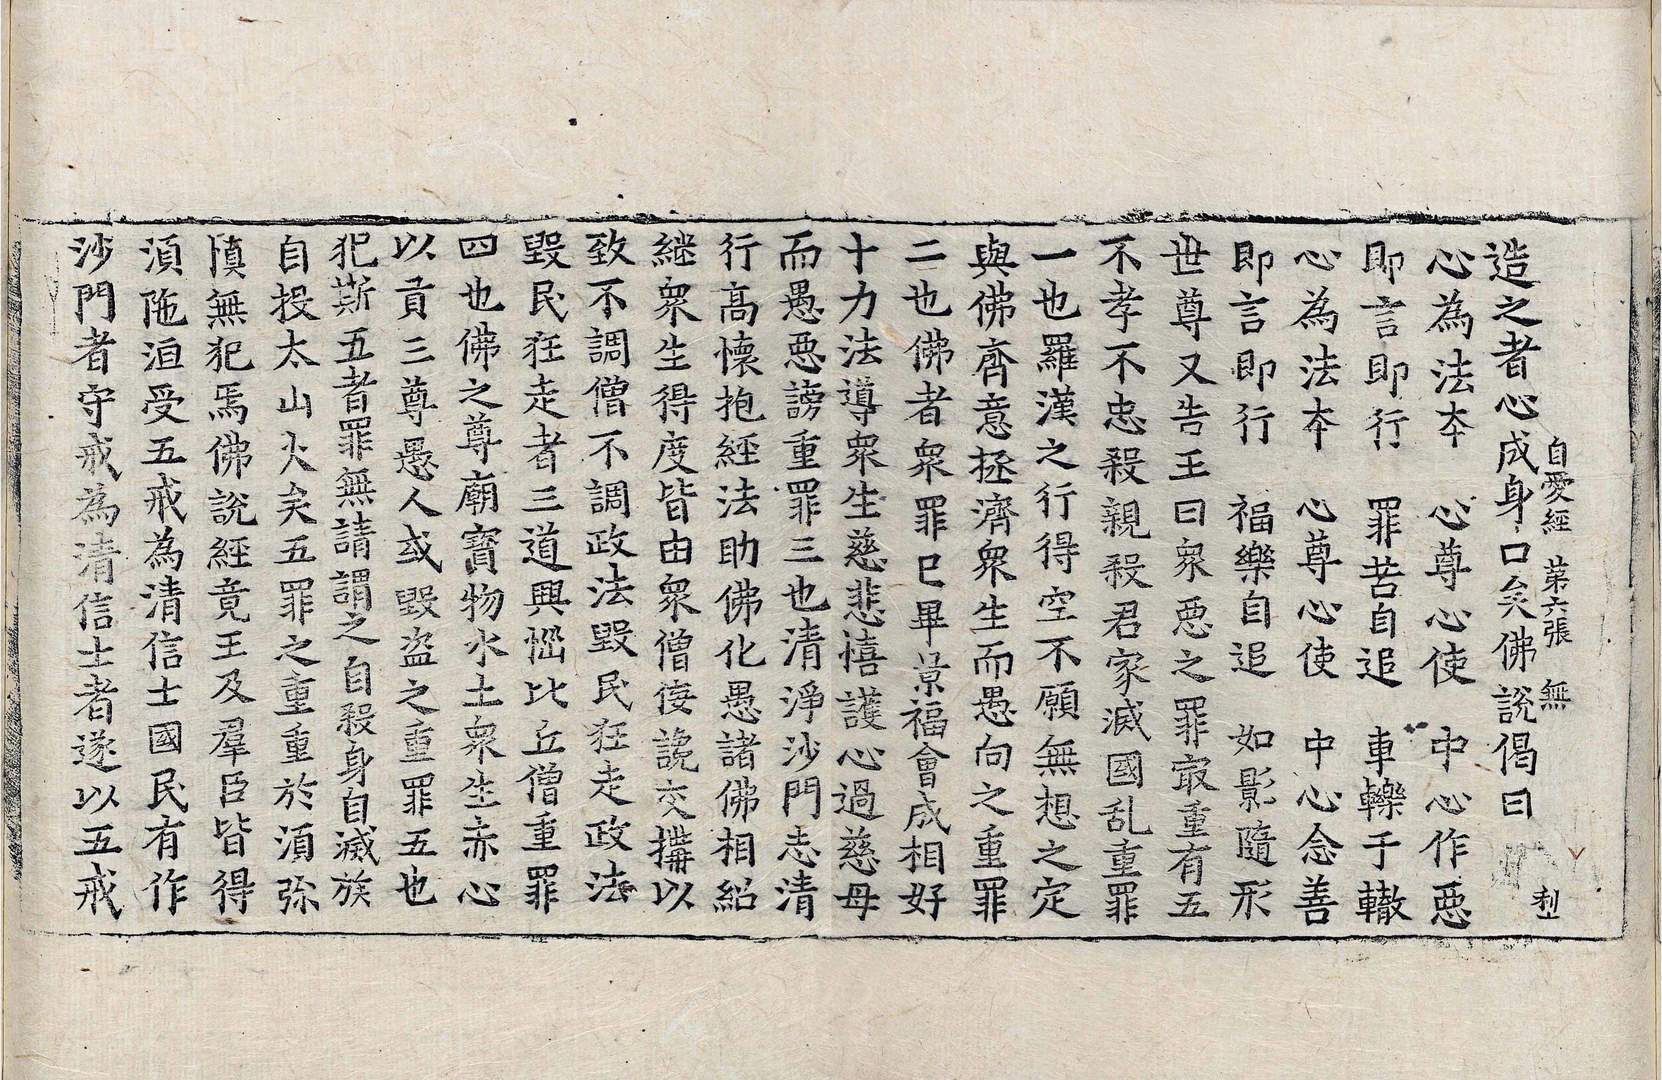 造之者心成身口矣佛說偈曰
自愛經 第六張 無
利
心為法本 心尊心使 中心作惡
即言即行 罪苦自追 車轢于轍
心為法本 心尊心使 中心念善
即言即行 福樂自追 如影隨形
世尊又告王曰眾惡之罪冣重有五
不孝不忠殺親殺君家滅國乱重罪
一也羅漢之行得空不願無想之定
與佛齊意拯濟眾生而愚向之重罪
二也佛者眾罪已畢景福會成相好
十力法導眾生慈悲憘護心過慈母
而愚惡謗重罪三也清淨沙門志清
行高懷抱經法助佛化愚諸佛相紹
継眾生得度皆由眾僧侫讒交搆以
致不調僧不調政法毀民狂走政法
毀民狂走者三道興惱比丘僧重罪
四也佛之尊廟寶物水土眾生赤心
以貢三尊愚人或毀盜之重罪五也
犯斯五者罪無請謂之自殺身自滅族
自投太山火矣五罪之重重於湏弥
慎無犯焉佛說經竟王及羣臣皆得
湏陁洹受五戒為清信士國民有作
沙門者守戒為清信士者遂以五戒